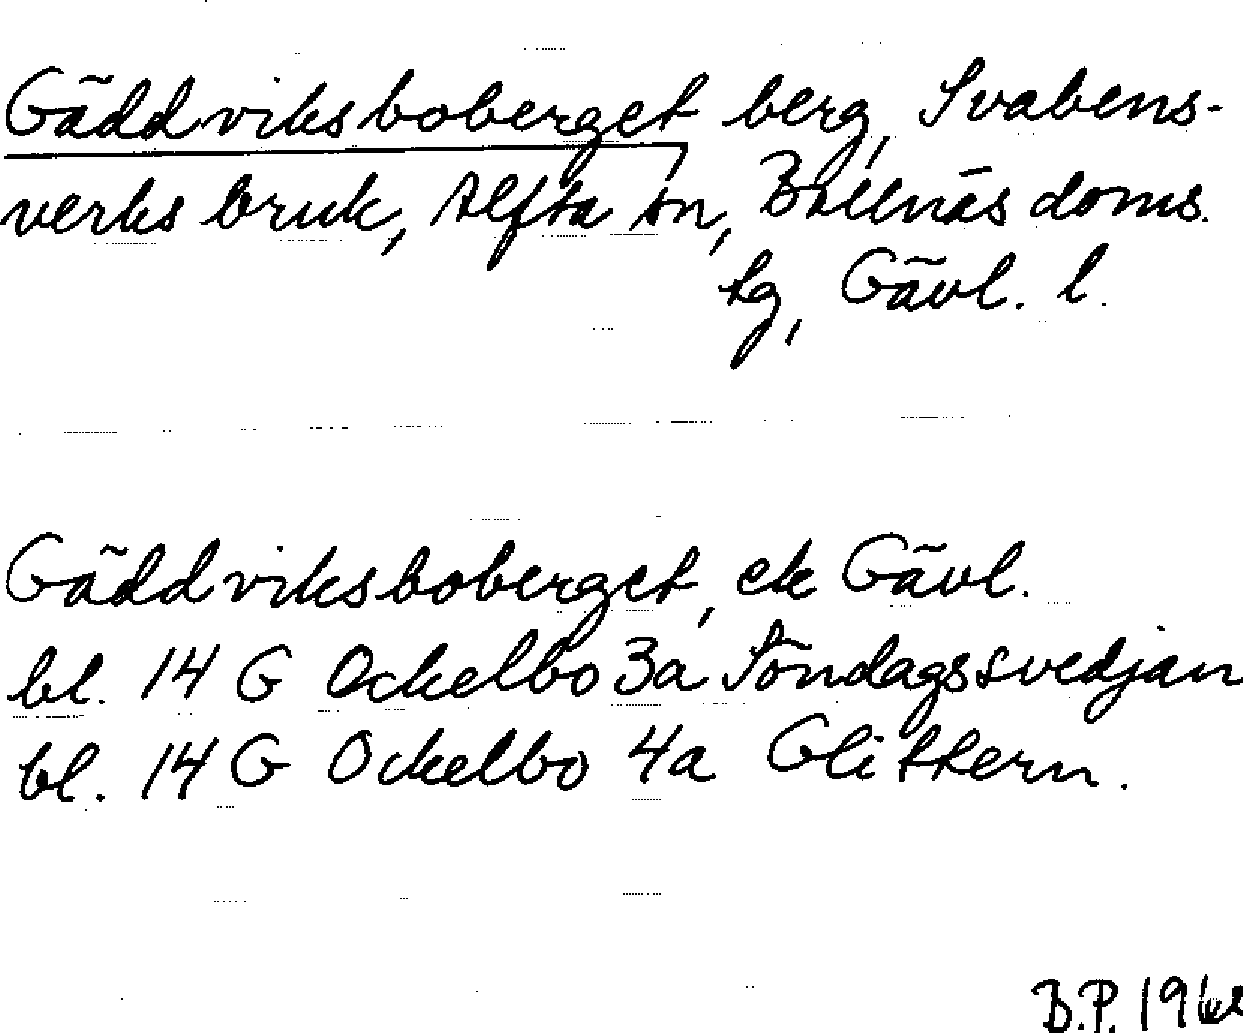 Gäddviksboberget berg, Svabens-
verks bruk, Alfta sn, Bollnäs doms.
hg, Gävl. l.
Gäddviksboberget, ek Gävl.
bl. 14 G Ockelbo 3a Söndagssvedjan
bl. 14 G Ockelbo 4a Glittern.
B.P.